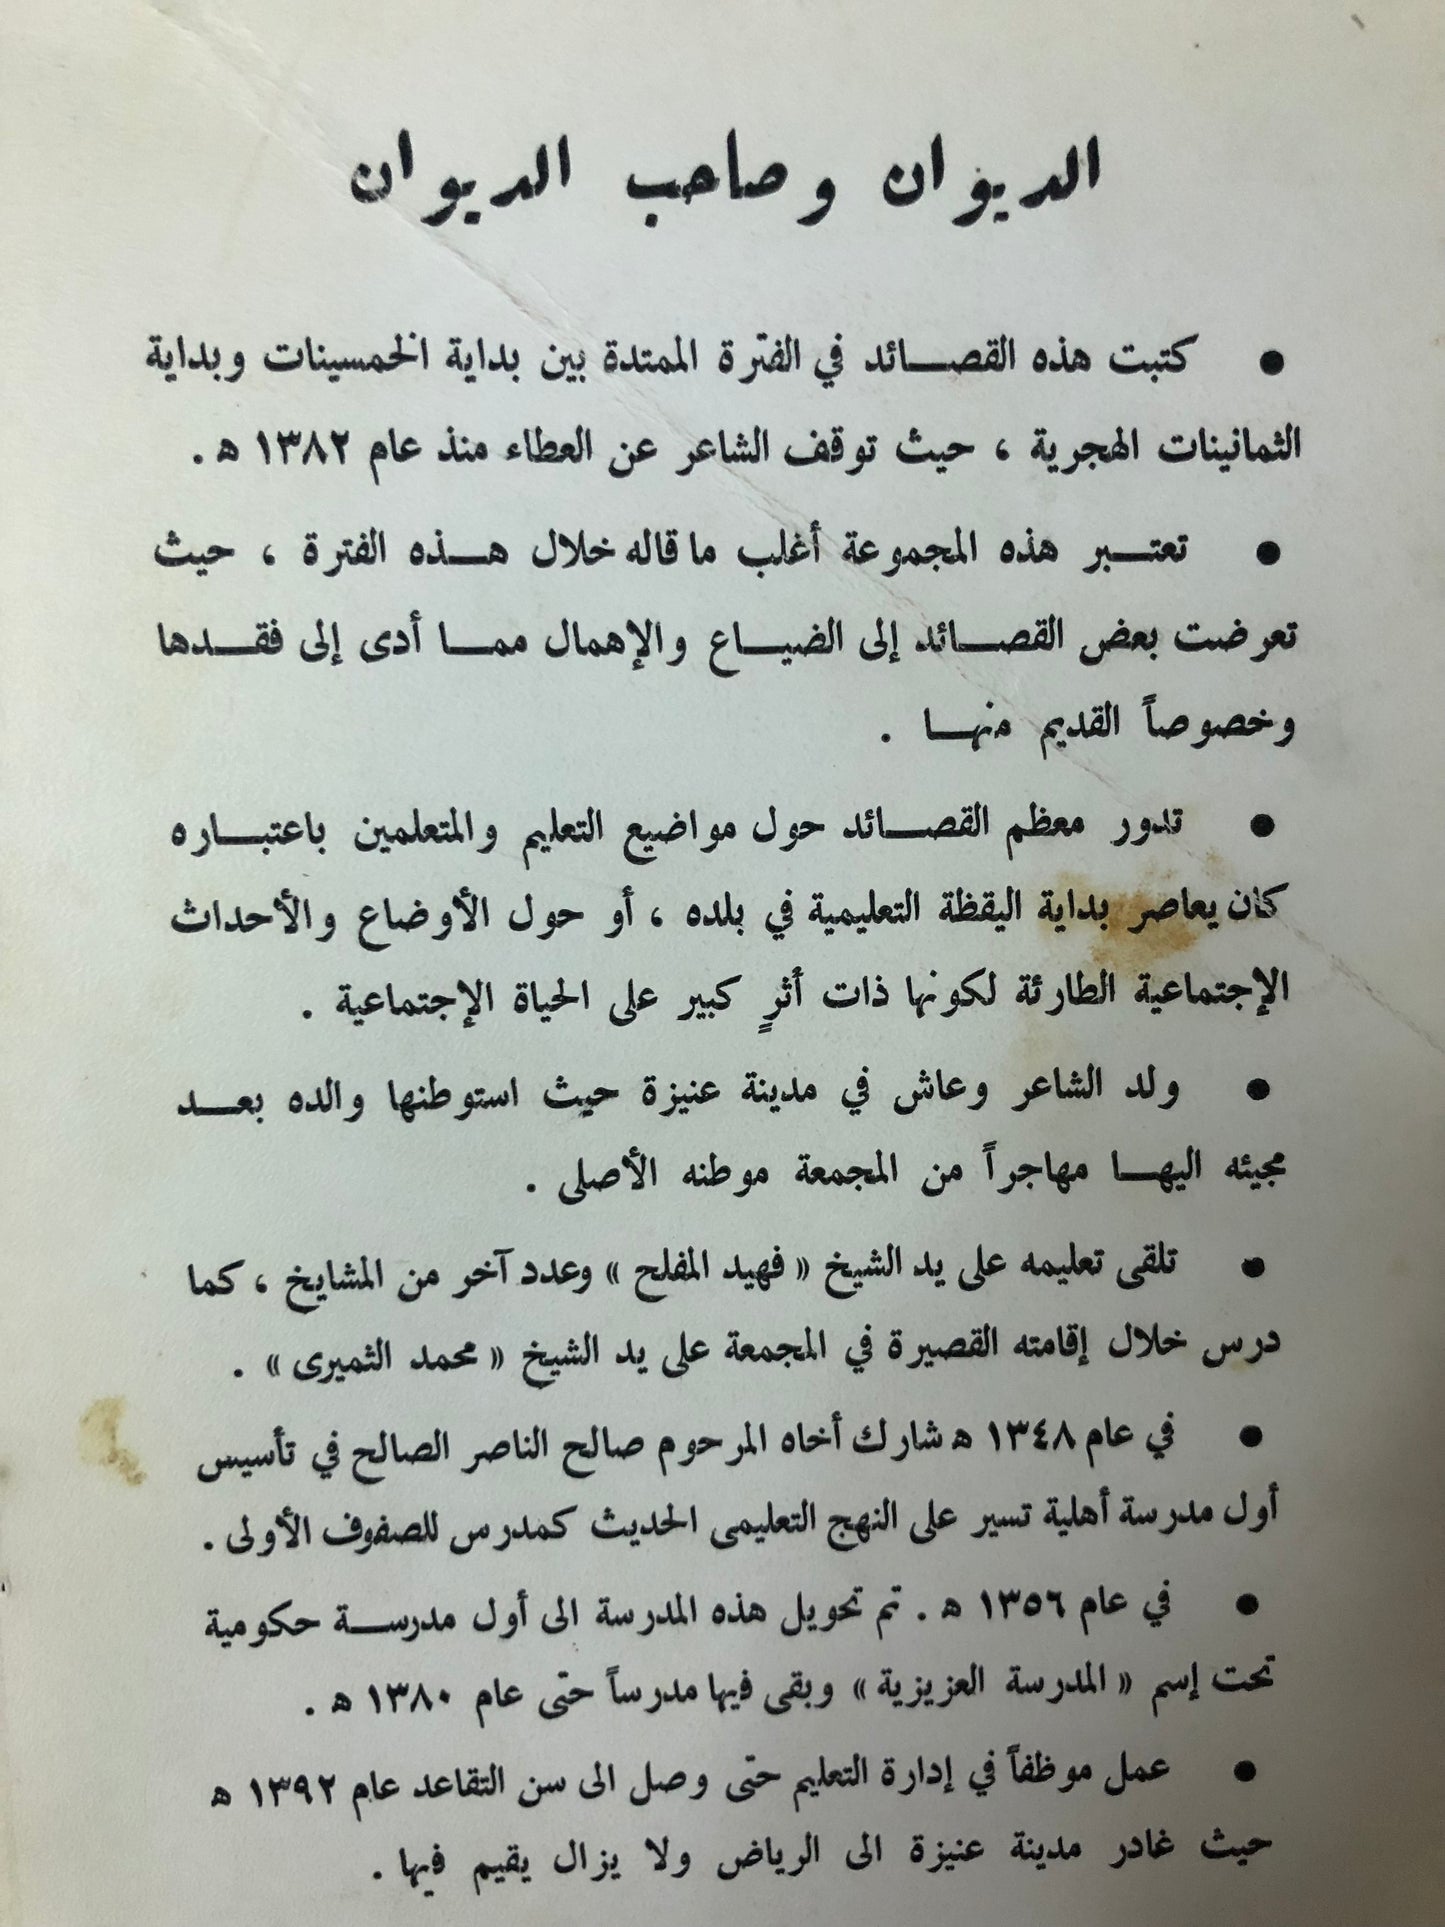 الديوان وصاحب الديوان
● كتبت هذه القصائد في الفترة الممتدة بين بداية الخمسينات وبداية
الثمانينات الهجرية ، حيث توقف الشاعر عن العطاء منذ عام ١٣٨٢ ه .
● تعتبر هذه المجموعة أغلب ما قاله خلال هذه الفترة ، حيث
تعرضت بعض القصائد إلى الضياع والإهمال مما أدى إلى فقدها
وخصوصاً القديم منها .
● تدور معظم القصائد حول مواضيع التعليم والمتعلمين باعتباره
كان يعاصر بداية اليقظة التعليمية في بلده ، أو حول الأوضاع والأحداث
الإجتماعية الطارئة لكونها ذات أثرٍ كبير على الحياة الإجتماعية .
● ولد الشاعر وعاش في مدينة عنيزة حيث استوطنها والده بعد
مجيئه اليها مهاجراً من المجمعة موطنه الأصلى .
● تلقى تعليمه على يد الشيخ « فهيد المفلح » وعدد آخر من المشايخ ، كما
درس خلال إقامته القصيرة في المجمعة على يد الشيخ « محمد الثميرى » .
● في عام ١٣٤٨ ه شارك أخاه المرحوم صالح الناصر الصالح في تأسيس
أول مدرسة أهلية تسير على النهج التعليمى الحديث كمدرس للصفوف الأولى .
● في عام ١٣٥٦ ه . تم تحويل هذه المدرسة الى أول مدرسة حكومية
تحت إسم « المدرسة العزيزية » وبقى فيها مدرساً حتى عام ١٣٨٠ ه .
● عمل موظفاً في إدارة التعليم حتى وصل الى سن التقاعد عام ١٣٩٢ ه
حيث غادر مدينة عنيزة الى الرياض ولا يزال يقيم فيها .